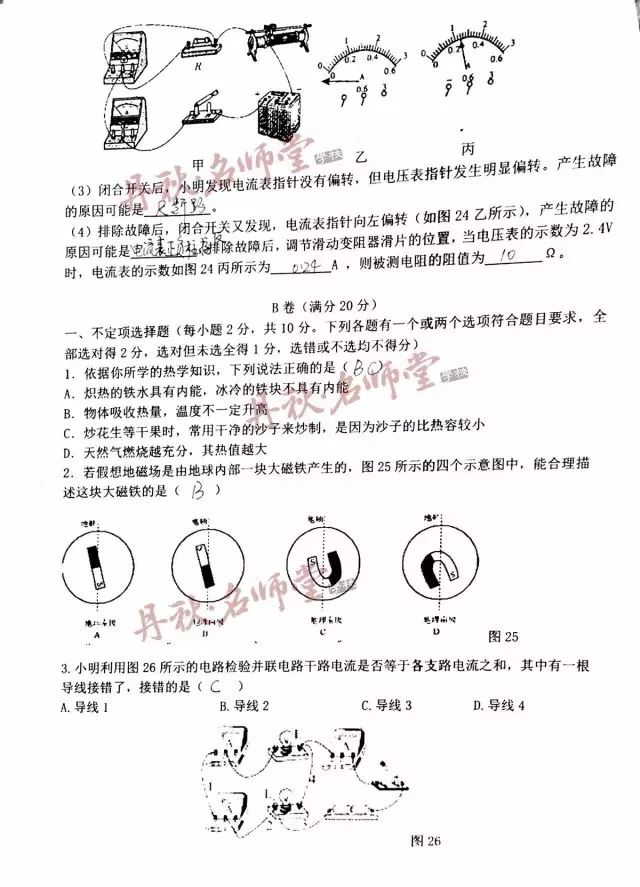 R
0 1 2 3
0 0.2 0.4 0.6
A
- 0.6 3
1 2
0.2 0.4 3
0.6
A
- 0.6 3
甲 乙 丙
(3) 闭合开关后,小明发现电流表指针没有偏转,但电压表指针发生明显偏转。产生故障
的原因可能是 R断路 。
(4) 排除故障后,闭合开关又发现,电流表指针向左偏转(如图 24 乙所示),产生故障的
原因可能是 电流表正负接线 排除故障后,调节滑动变阻器滑片的位置,当电压表的示数为 2.4V
时,电流表的示数如图 24 丙所示为 0.24 A ,则被测电阻的阻值为 10 Ω。
B 卷(满分 20 分)
一、不定项选择题(每小题 2 分,共 10 分。下列各题有一个或两个选项符合题目要求,全
部选对得 2 分,选对但未选全得 1 分,选错或不选均不得分)
1. 依据你所学的热学知识,下列说法正确的是( BC )
A. 炽热的铁水具有内能,冰冷的铁块不具有内能
B. 物体吸收热量,温度不一定升高
C. 炒花生等干果时,常用干净的沙子来炒制,是因为沙子的比热容较小
D. 天然气燃烧越充分,其热值越大
2. 若假想地磁场是由地球内部一块大磁铁产生的,图 25 所示的四个示意图中,能合理描
述这块大磁铁的是( B )
地轴 地轴 地轴 地轴
S S S S
地理南极 地理南极 地理南极 地理南极
A B C D 图 25
3. 小明利用图 26 所示的电路检验并联电路干路电流是否等于各支路电流之和,其中有一根
导线接错了,接错的是( C )
A. 导线 1 B. 导线 2 C. 导线 3 D. 导线 4
图 26
丹秋·名师堂 学校
丹秋·名师堂 学校
丹秋·名师堂 学校